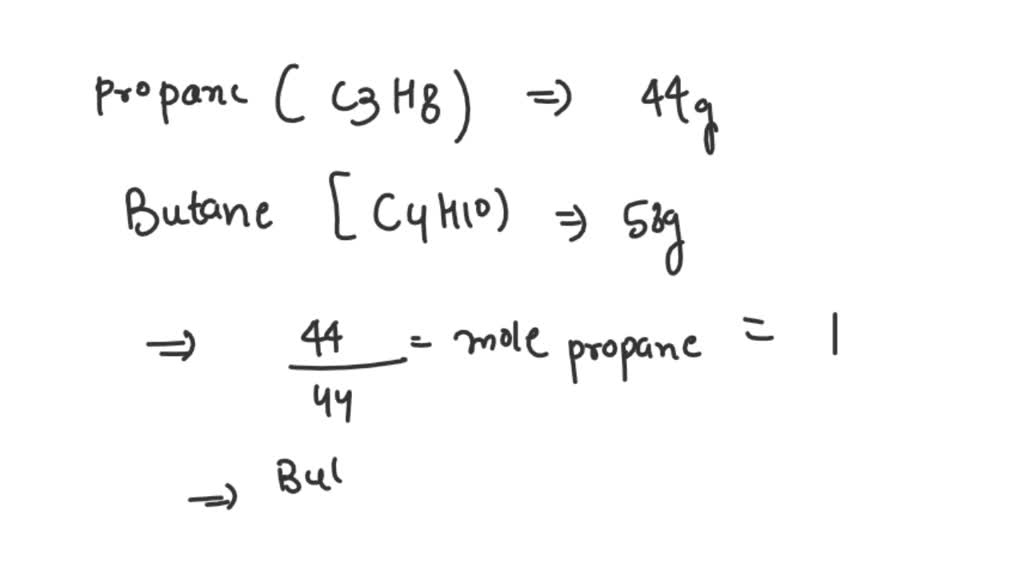 propane ( C3H8) => 44g
Butane [C4H10) => 58g
=> 44/44 = mole propane = 1
=> But